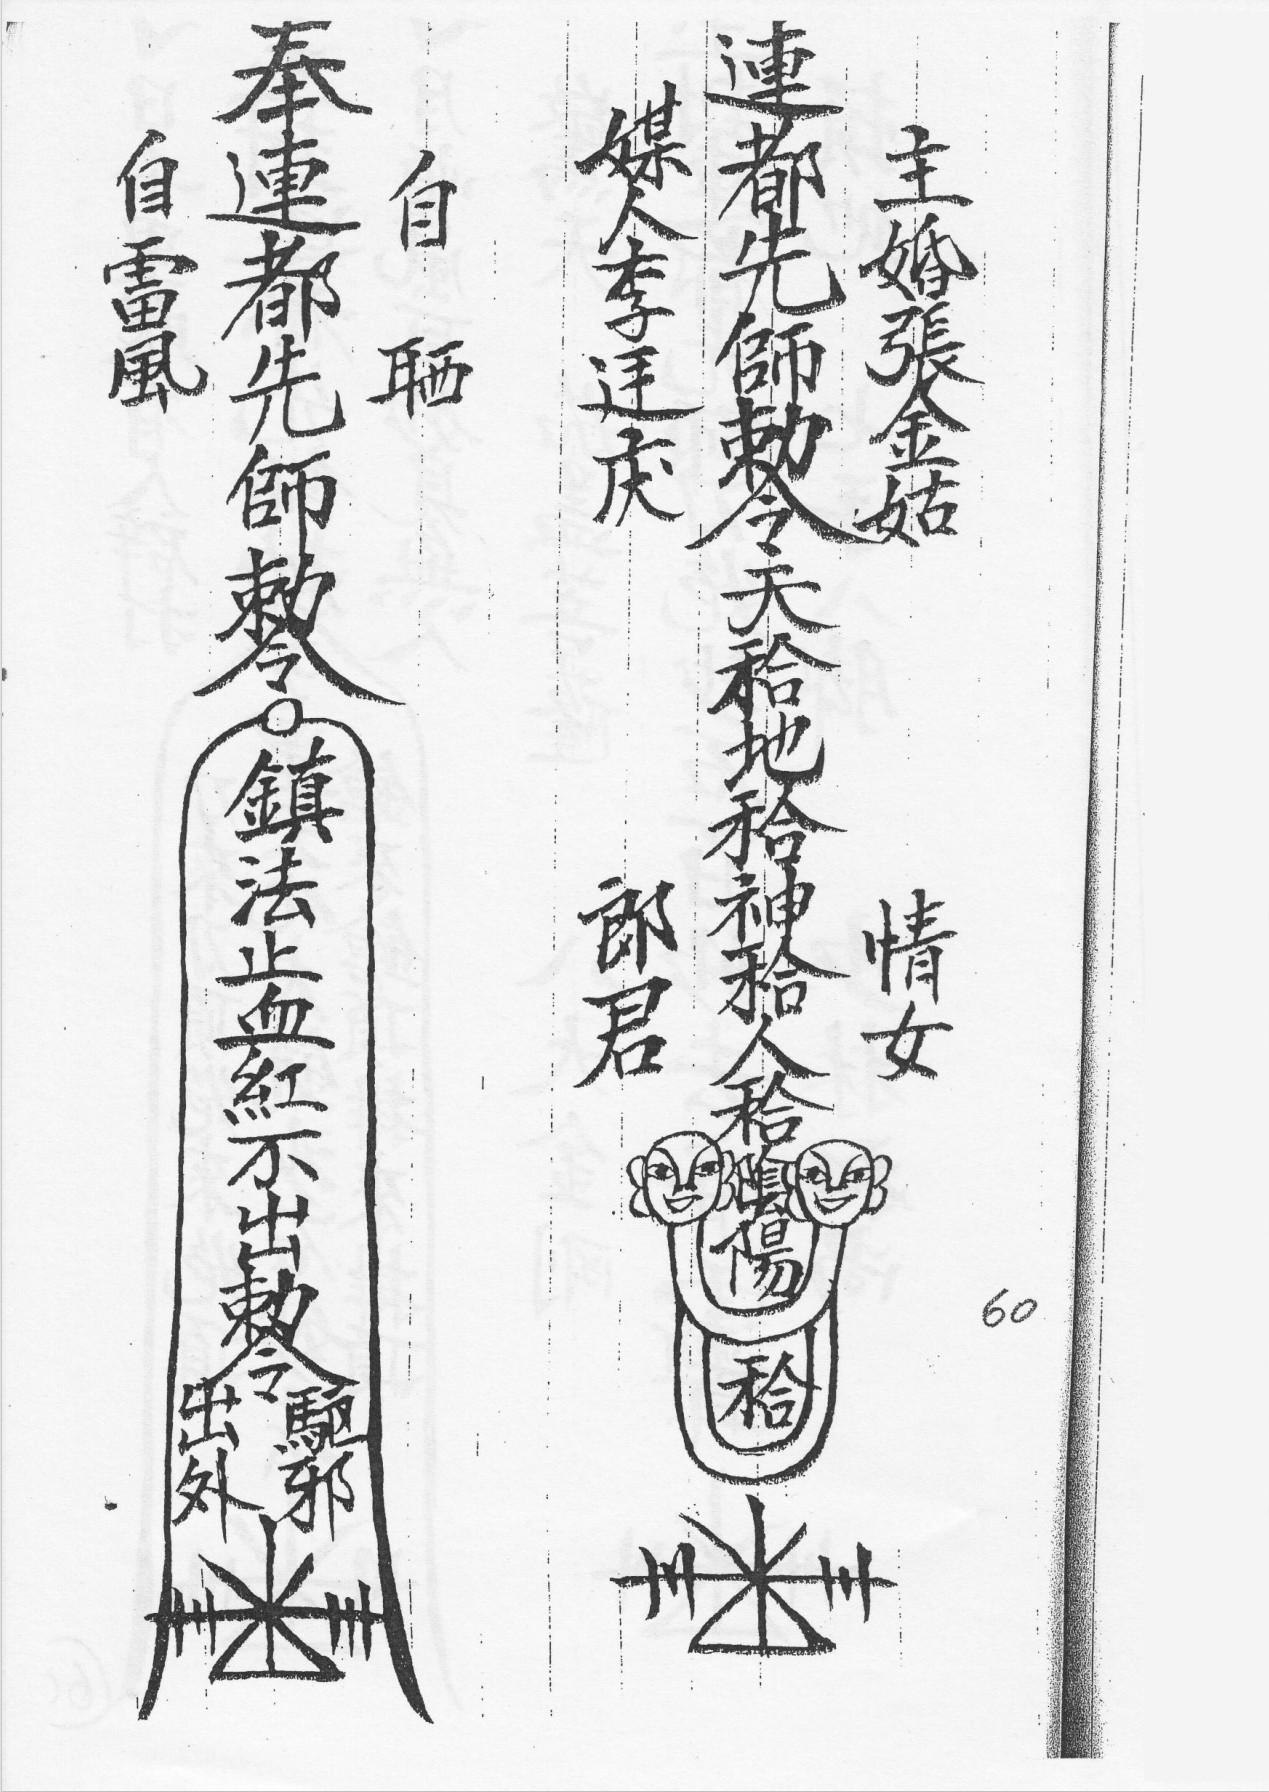 主婚張金姑
情女
連都先師勅令天秴地秴神秴人秴陰陽
秴
媒人李
郎君
60
自晒
奉連都先師勅令
鎮法止血紅不出勅令
驅邪
出外
自雷風